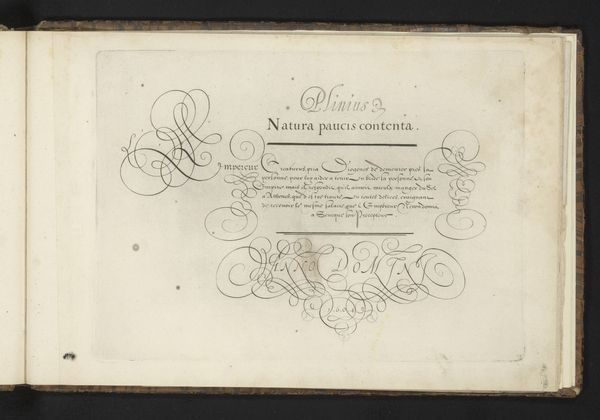 Plinius
Natura paucis contenta.
L'Empereur Craterus, pria Diogenes de demeurer pres sa
personne, pour luy aider a tenir en bride la personne & son
Empire mais il respondit qu'il aimoit mieulx manger du Sel
a Athenes, que d'estre traicte en toutes delices, craignant
de recevoir le mesme salaire que l'Empereur Neron donna
a Seneque son Precepteur.
ANNO DOMINI